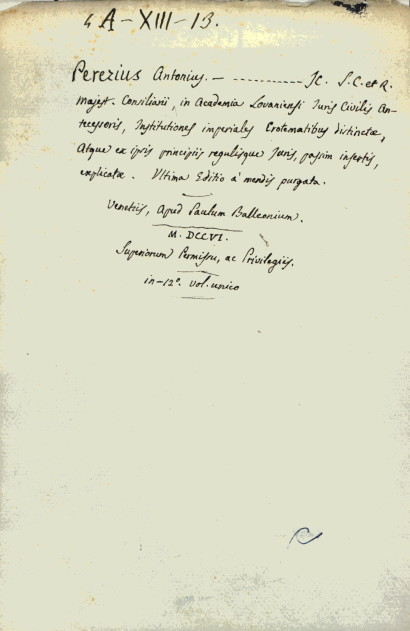 4 A-XIII-13.
Perezius Antonius. — ---------- JC. S.C. et R.
Majest. Consiliarii, in Academia Lovaniensi Iuris Civilis An-
tecessoris, Institutiones imperiales Erotematibus distinctæ,
Atque ex ipsis principiis regulisque Iuris, passim insertis,
explicatæ. Ultima Editio à mendis purgata.
Venetiis, Apud Paulum Balleonium.
M. DCCVI.
Superiorum Permissu, ac Privilegiis.
in-12°. vol. unico